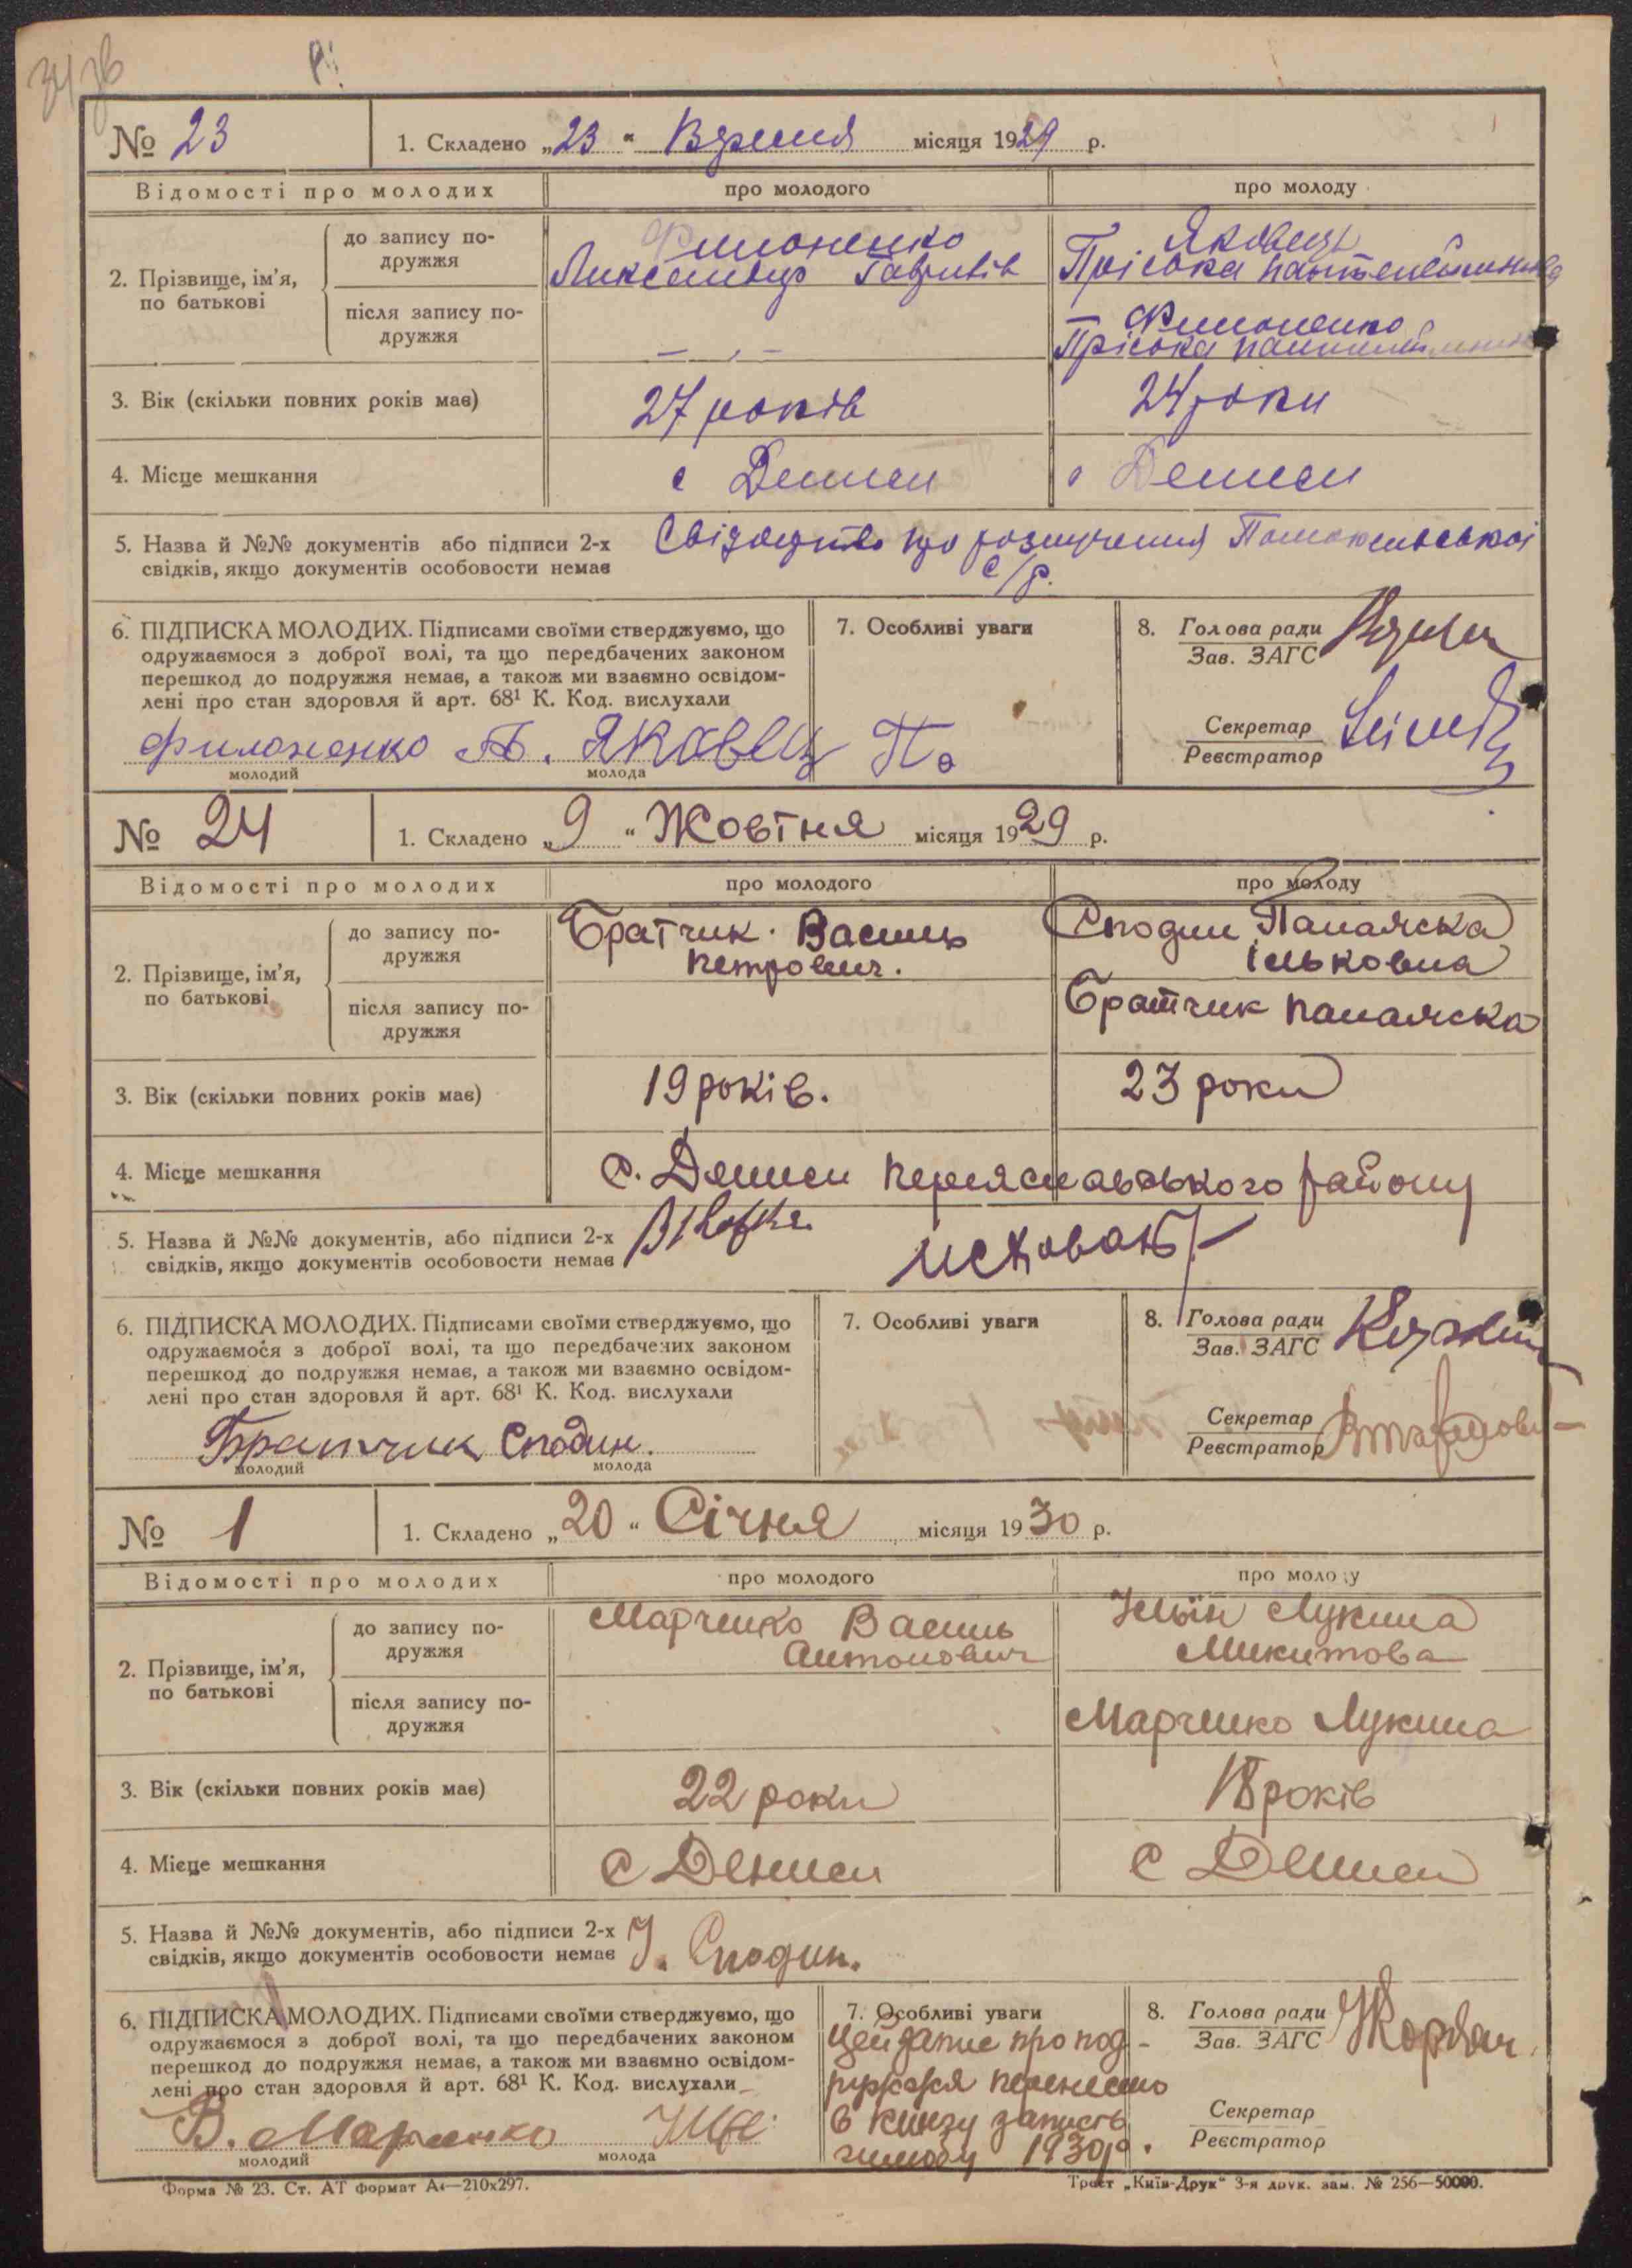 34зв
№ 23
1. Складено „23“ Вересня місяця 1929 р.
Відомості про молодих
про молодого
про молоду
2. Прізвище, ім’я, по батькові
до запису подружжя
Филоненко
Яковець
Пріська
після запису подружжя
— „ —
Филоненко
Пріська
3. Вік (скільки повних років має)
27 років
24 роки
4. Місце мешкання
с Дениси
с Дениси
5. Назва й №№ документів або підписи 2-х
свідків, якщо документів особовости немає
про
с/р.
6. ПІДПИСКА МОЛОДИХ. Підписами своїми стверджуємо, що
одружаємося з доброї волі, та що передбачених законом
перешкод до подружжя немає, а також ми взаємно освідом-
лені про стан здоровля й арт. 68¹ К. Код. вислухали
Филоненко
Яковець
молодий
молода
7. Особливі уваги
8. Голова ради
Зав. ЗАГС
Секретар
Реєстратор
№ 24
1. Складено „9“ Жовтня місяця 1929 р.
Відомості про молодих
про молодого
про молоду
2. Прізвище, ім’я, по батькові
до запису подружжя
Братчик Василь
Петрович.
Сподин Панаяска
Ільковна
після запису подружжя
Братчик Панаяска
3. Вік (скільки повних років має)
19 років.
23 роки
4. Місце мешкання
с. Дениси Переяславського району
5. Назва й №№ документів, або підписи 2-х
свідків, якщо документів особовости немає
6. ПІДПИСКА МОЛОДИХ. Підписами своїми стверджуємо, що
одружаємося з доброї волі, та що передбачених законом
перешкод до подружжя немає, а також ми взаємно освідом-
лені про стан здоровля й арт. 68¹ К. Код. вислухали
Братчик Сподин.
молодий
молода
7. Особливі уваги
8. Голова ради
Зав. ЗАГС
Секретар
Реєстратор
№ 1
1. Складено „20“ Січня місяця 1930 р.
Відомості про молодих
про молодого
про молоду
2. Прізвище, ім’я, по батькові
до запису подружжя
Марченко Василь
Антонович
Ільїн Лукина
Микитова
після запису подружжя
Марченко Лукина
3. Вік (скільки повних років має)
22 роки
18 років
4. Місце мешкання
с Дениси
с Дениси
5. Назва й №№ документів, або підписи 2-х
свідків, якщо документів особовости немає
І. Сподин.
6. ПІДПИСКА МОЛОДИХ. Підписами своїми стверджуємо, що
одружаємося з доброї волі, та що передбачених законом
перешкод до подружжя немає, а також ми взаємно освідом-
лені про стан здоровля й арт. 68¹ К. Код. вислухали
В. Марченко
молодий
молода
7. Особливі уваги
Цей запис про под-
ружжя перенесено
в книгу записів
1930 р.
8. Голова ради
Зав. ЗАГС
Секретар
Реєстратор
Форма № 23. Ст. АТ формат А4—210х297.
Трест „Київ-Друк“ 3-я друк. зам. № 256—50000.